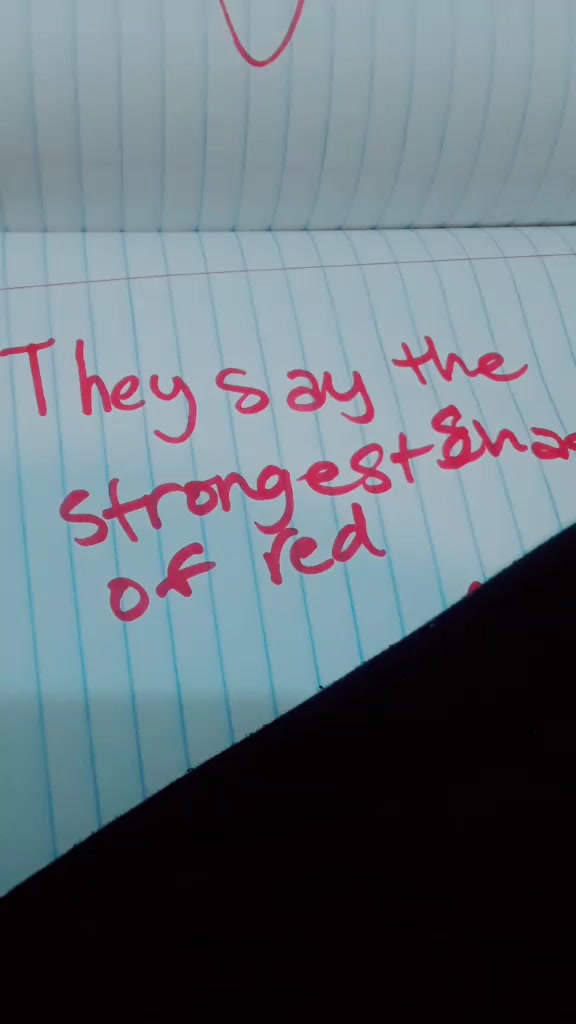 They say the
strongest sha
of red